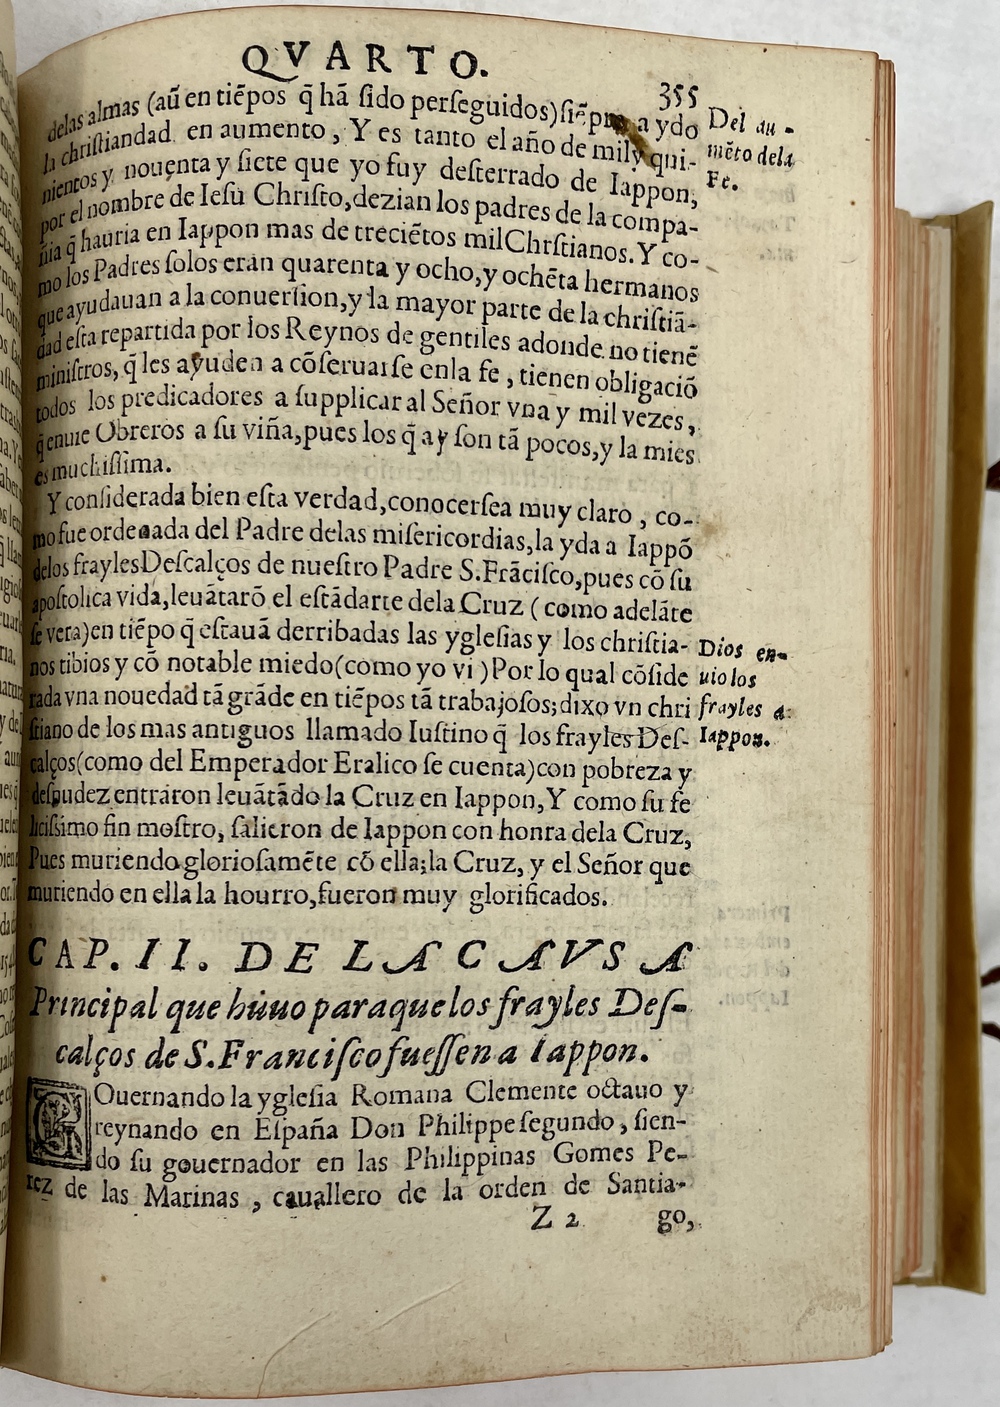 QVARTO.
355
delas almas (aũ en tiẽpos q̃ hã ſido perſeguidos) ſiẽpre a ydo
la chriſtiandad en aumento, Y es tanto el año de mil y qui-
nientos y nouenta y ſiete que yo fuy deſterrado de Iappon,
por el nombre de Ieſu Chriſto, dezian los padres de la compa-
ñia q̃ hauria en Iappon mas de treciẽtos mil Chrſtianos. Y co-
mo los Padres ſolos eran quarenta y ocho, y ochẽta hermanos
que ayudauan a la conuerſion, y la mayor parte de la chriſtiã-
dad eſta repartida por los Reynos de gentiles adonde no tienẽ
miniſtros, q̃ les ayuden a cõſeruarſe enla fe, tienen obligaciõ
todos los predicadores a ſupplicar al Señor vna y mil vezes,
q̃ enuie Obreros a ſu viña, pues los q̃ ay ſon tã pocos, y la mies
es muchiſſima.
Y conſiderada bien eſta verdad, conocerſea muy claro, co-
mo fue ordenada del Padre delas miſericordias, la yda a Iappõ
delos frayles Deſcalços de nueſtro Padre S. Frãciſco, pues cõ ſu
apoſtolica vida, leuãtarõ el eſtãdarte dela Cruz (como adelãte
ſe vera) en tiẽpo q̃ eſtauã derribadas las ygleſias y los chriſtia-
nos tibios y cõ notable miedo (como yo vi) Por lo qual cõſide
rada vna nouedad tã grãde en tiẽpos tã trabajoſos; dixo vn chri
ſtiano de los mas antiguos llamado Iuſtino q̃ los frayles Deſ-
calços (como del Emperador Eralico ſe cuenta) con pobreza y
deſnudez entraron leuãtãdo la Cruz en Iappon, Y como ſu fe
liciſsimo fin moſtro, ſalieron de Iappon con honra dela Cruz,
Pues muriendo glorioſamẽte cõ ella; la Cruz, y el Señor que
muriendo en ella la hourro, fueron muy glorificados.
Del au-
mẽto dela
Fe.
Dios en-
uio los
frayles a
Iappon.
CAP. II. DE LA CAVSA
Principal que huuo paraque los frayles Deſ-
calços de S. Franciſco fueſſen a Iappon.
GOuernando la ygleſia Romana Clemente octauo y
reynando en Eſpaña Don Philippe ſegundo, ſien-
do ſu gouernador en las Philippinas Gomes Pe-
rez de las Marinas, cauallero de la orden de Santia-
Z 2 go,